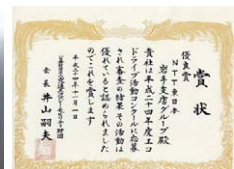 賞状
優良賞
NTT東日本
岩手支店グループ殿
貴社は平成二十四年度エコ
ドライブ活動コンクールに応募
され審査の結果その活動は
優れていると認められました
のでこれを賞します
平成二十四年十一月一日
会長 井山嗣夫